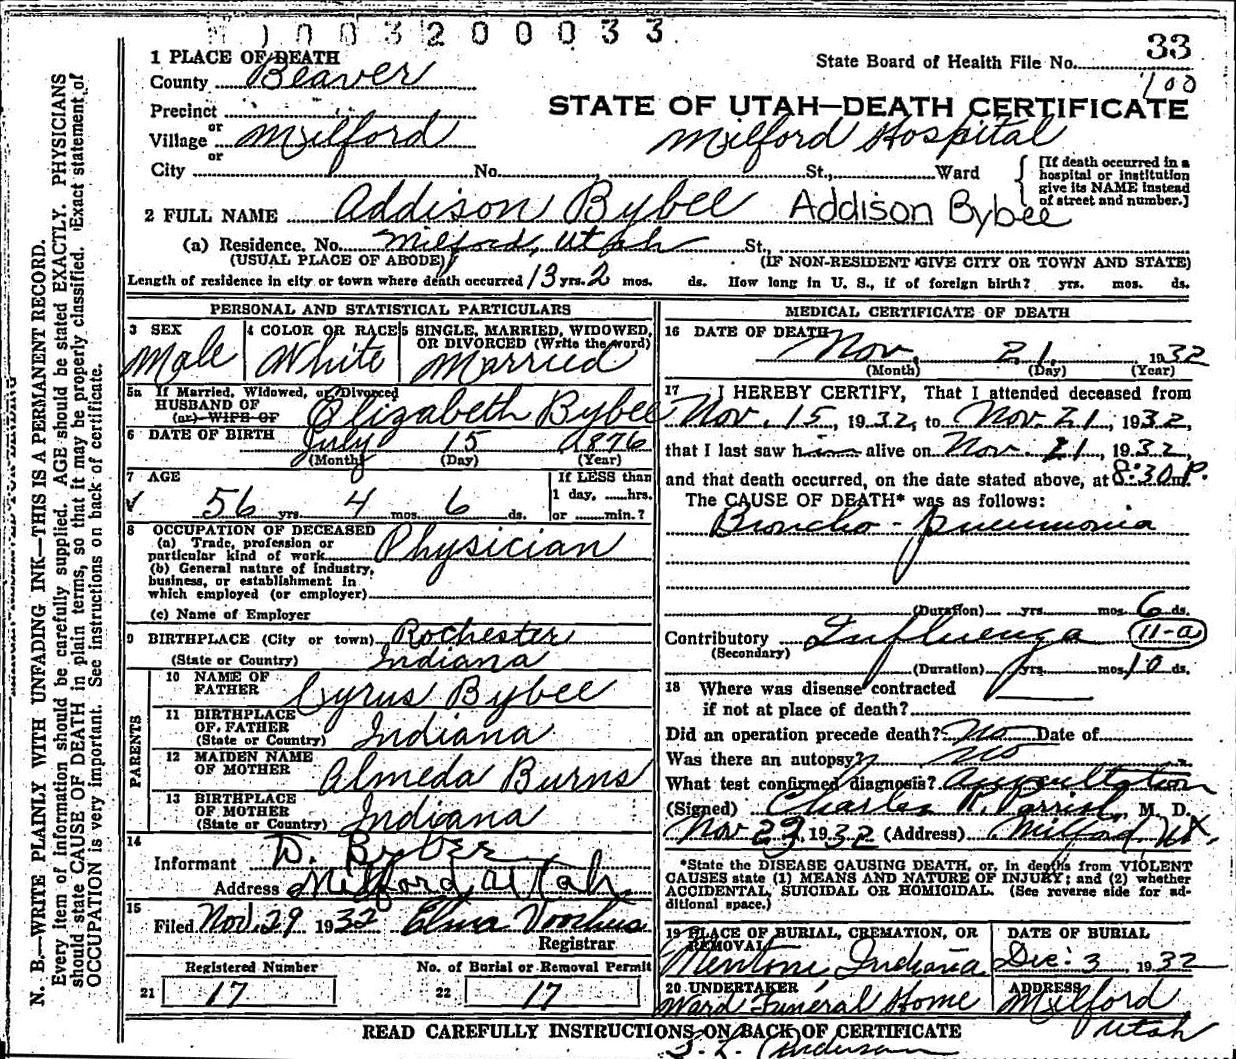 0 0 3 2 0 0 0 3 3
33
1 PLACE OF DEATH
State Board of Health File No.
100
County Beaver
Precinct
STATE OF UTAH—DEATH CERTIFICATE
or
Village Milford
Milford Hospital
or
City No. St., Ward
[If death occurred in a hospital or institution give its NAME instead of street and number.]
2 FULL NAME Addison Bybee Addison Bybee
(a) Residence. No. Milford, Utah St.,
(USUAL PLACE OF ABODE) (IF NON-RESIDENT GIVE CITY OR TOWN AND STATE)
Length of residence in city or town where death occurred 13 yrs. 2 mos. ds. How long in U. S., if of foreign birth? yrs. mos. ds.
PERSONAL AND STATISTICAL PARTICULARS
3 SEX
Male
4 COLOR OR RACE
White
5 SINGLE, MARRIED, WIDOWED, OR DIVORCED (Write the word)
Married
5a If Married, Widowed, or Divorced
HUSBAND OF
(or) WIFE OF
Elizabeth Bybee
6 DATE OF BIRTH July 15 1876
(Month) (Day) (Year)
7 AGE
56 yrs. 4 mos. 6 ds.
If LESS than
1 day, hrs.
or min.?
8 OCCUPATION OF DECEASED
(a) Trade, profession or
particular kind of work Physician
(b) General nature of industry,
business, or establishment in
which employed (or employer)
(c) Name of Employer
9 BIRTHPLACE (City or town) Rochester
(State or Country) Indiana
PARENTS
10 NAME OF
FATHER Cyrus Bybee
11 BIRTHPLACE
OF FATHER
(State or Country) Indiana
12 MAIDEN NAME
OF MOTHER Almeda Burns
13 BIRTHPLACE
OF MOTHER
(State or Country) Indiana
14
Informant D. Bybee
Address Milford, Utah.
15
Filed Nov. 29 1932 Elma Voorhus
Registrar
Registered Number
21 17
No. of Burial or Removal Permit
22 17
MEDICAL CERTIFICATE OF DEATH
16 DATE OF DEATH
Nov. 21, 1932
(Month) (Day) (Year)
17 I HEREBY CERTIFY, That I attended deceased from
Nov. 15, 1932, to Nov. 21, 1932,
that I last saw him alive on Nov. 21, 1932,
and that death occurred, on the date stated above, at 8:30 P. m.
The CAUSE OF DEATH* was as follows:
Broncho-pneumonia
(Duration) yrs. mos. 6 ds.
Contributory Influenza 11-a
(Secondary)
(Duration) yrs. mos. 10 ds.
18 Where was disease contracted
if not at place of death?
Did an operation precede death? No Date of
Was there an autopsy? No
What test confirmed diagnosis? Auscultation
(Signed) Charles R. Parrish, M. D.
Nov 23, 1932 (Address) Milford, Ut.
*State the DISEASE CAUSING DEATH, or, in deaths from VIOLENT
CAUSES state (1) MEANS AND NATURE OF INJURY; and (2) whether
ACCIDENTAL, SUICIDAL OR HOMICIDAL. (See reverse side for ad-
ditional space.)
19 PLACE OF BURIAL, CREMATION, OR
REMOVAL
Mentone, Indiana
DATE OF BURIAL
Dec. 3, 1932
20 UNDERTAKER
Ward Funeral Home
ADDRESS
Milford
Utah
READ CAREFULLY INSTRUCTIONS ON BACK OF CERTIFICATE
S. L. Anderson
N. B.—WRITE PLAINLY WITH UNFADING INK—THIS IS A PERMANENT RECORD.
Every item of information should be carefully supplied. AGE should be stated EXACTLY. PHYSICIANS
should state CAUSE OF DEATH in plain terms, so that it may be properly classified. Exact statement of
OCCUPATION is very important. See instructions on back of certificate.